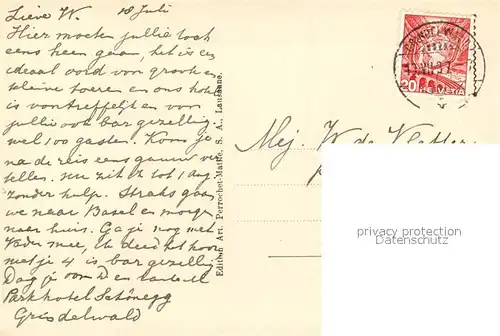 Lieve W. 18 Juli
Hier moeten jullie toch
eens heen gaan, het is een
ideaal oord voor groote en
kleine toeren en ons hotel
is voortreffelijk en voor
jullie ook bar gezellig
wel 100 gasten. Kom je
na de reis eens gauw ver
tellen. Nu zit ik tot 1 Aug.
zonder hulp. Straks gaan
we naar Basel en morgen
naar huis. Ga je nog met
Vader mee, ik deed het hoor
met je 4 is bar gezellig.
Dag je oor
Parkhotel Schönegg
Grindelwald
Edition Art. Perrochet-Matile, S. A., Lausanne.
GRINDELWALD
20
HELVETIA
Mej. W. de
privacy protection
Datenschutz